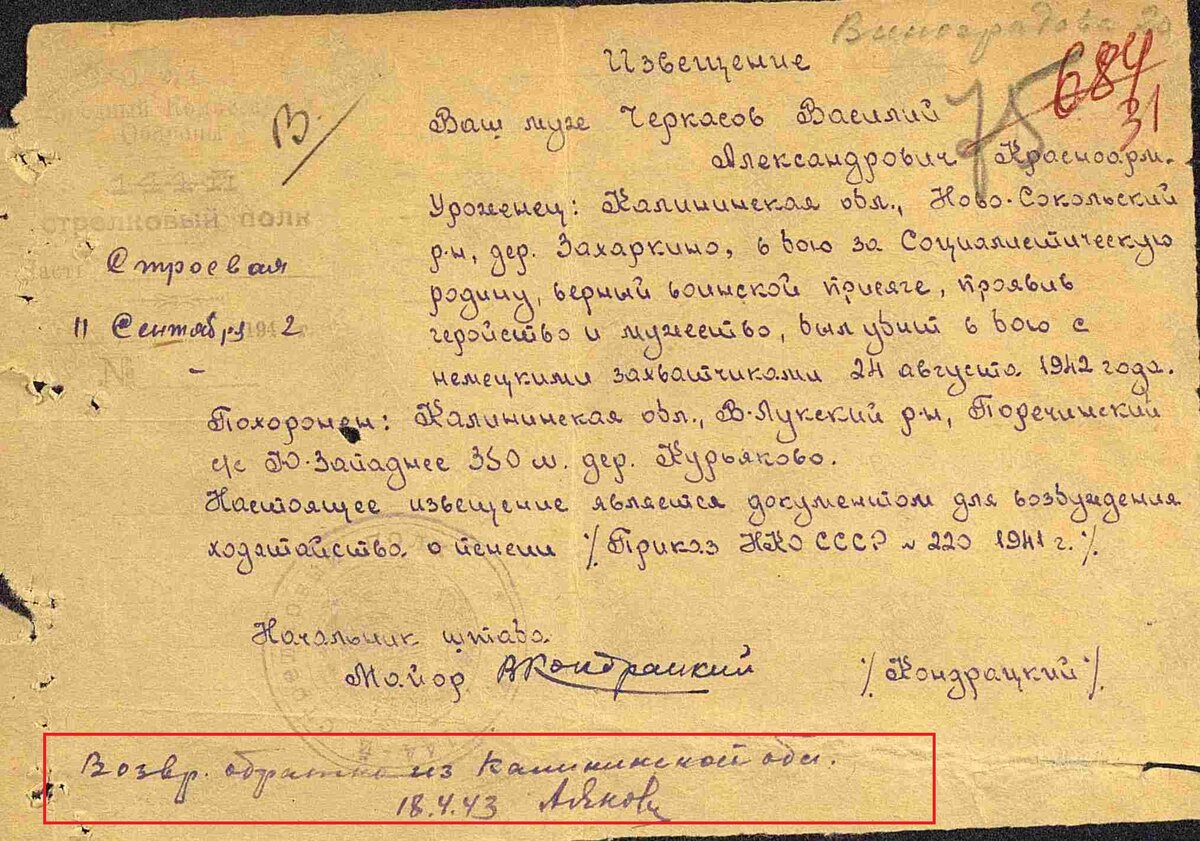 Виноградова
Извещение
684
31
75
В.
Ваш муж Черкасов Василий
Александрович Красноарм.
Уроженец: Калининская обл., Ново-Сокольский
р-н, дер. Захаркино, в бою за Социалистическую
родину, верный воинской присяге, проявив
геройство и мужество, был убит в бою с
немецкими захватчиками 24 августа 1942 года.
стрелковый полк
Часть Строевая
11 Сентября 1942 г.
№ -
Похоронен: Калининская обл., В-Лукский р-н, Поречинский
с/с Ю.Западнее 350 м. дер. Курьяково.
Настоящее извещение является документом для возбуждения
ходатайства о пенсии /Приказ НКО СССР № 220 1941 г./.
Начальник штаба
Майор ВКондрацкий /Кондрацкий/.
Возвр. обратно из Калининской обл.
18.4.43